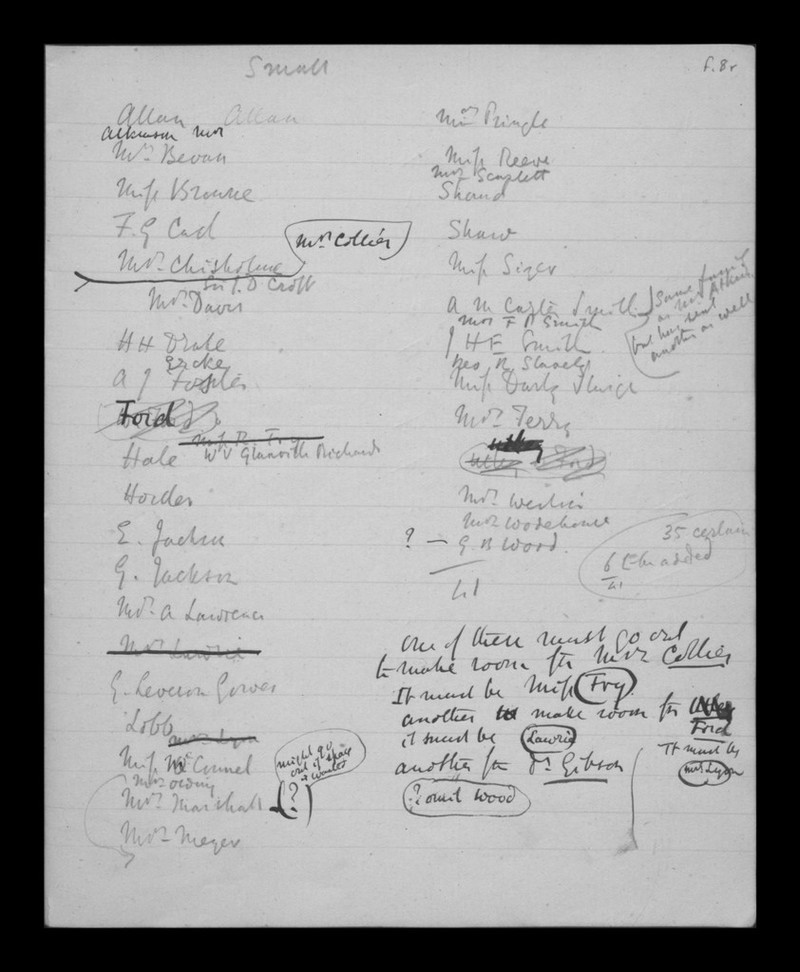 Small
f. 8r
Allan Allan
Atkinson Mrs
Mrs. Bevan
Miss Browne
F. G Card
Mrs. Collier
Mrs. Chisholme
Sir T. D Croft
Mrs. Davis
H H Drake
A J Foster
Ford
Miss R. Fry
Hale W V Glanville Richards
Horder
E. Jackson
G. Jackson
Mrs. A Lawrence
Mrs Lawrie
G. Leveson Gower
Lobb
Mrs Lyon
Miss McConnel
might go
out if space
is wanted
Mrs. Marshall (?)
Mrs. Meyer
Mrs Pringle
Miss Reeve
Mrs Scarlett
Shand
Shaw
Miss Siger
A M Carter Smith
Same family
as Mrs
but has sent
another as well
Mrs F A Smith
H E Smith
Geo R.
Miss
Mrs. Terry
Mrs.
Mrs Wodehouse
? — G B Wood.
41
35 certain
6 to be added
41
One of these must go out
to make room for Mrs Collier
It must be Miss Fry.
another to make room for
Ford
it must be Lawrie
another for Dr. Gibson
It must be
Mrs Lyon
? omit Wood